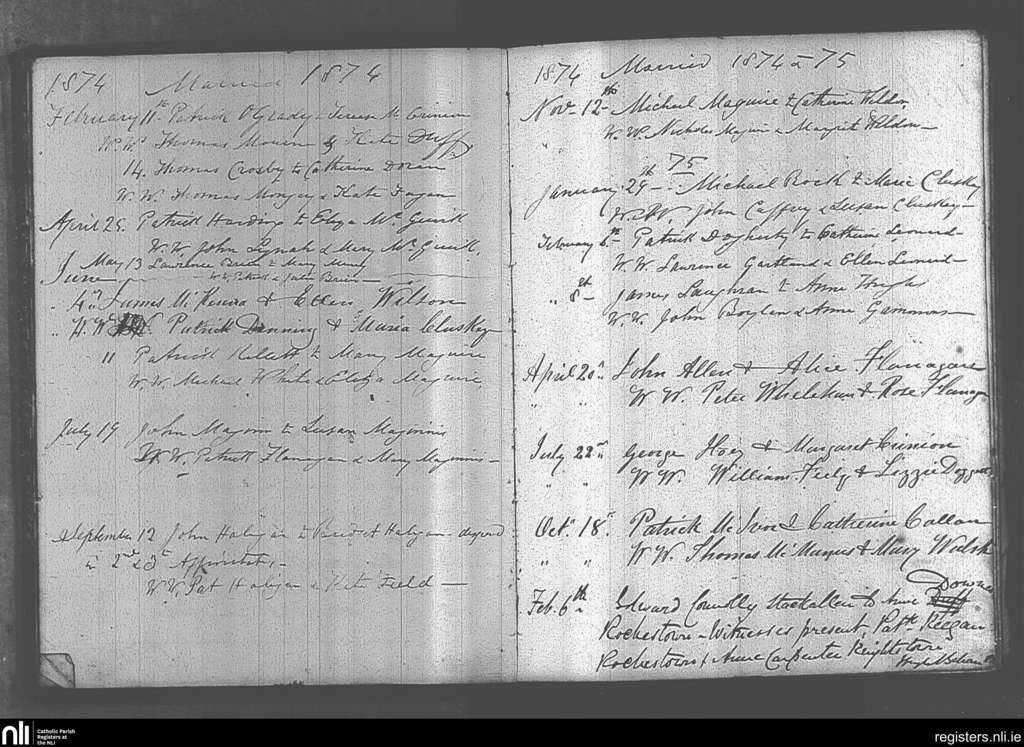 1874 Married 1874
February 11th Patrick O'Grady to Teresa M. Crinion
W.W. Thomas Mourn & Kate Duffy
14. Thomas Crosby to Catherine Doran
W.W. Thomas & Kate Fagan
April 25. Patrick Harding to Eliza Mc
W.W. John Lynch & Mary Mc
May 13 Lawrence Brien to Mary
W.W. Patrick & Julia Brien
June
" 4th James McKenna & Ellen Watson
" W.W. Patrick Denning & Maria Cluskey
11 Patrick to Mary Maguire
W.W. Michael White & Eliza Maguire
July 19 John to Susan Maginnis
W.W. Patrick Flanagan & Mary Maginnis
September 12 John Haligan to Bridget Haligan
in 2nd & 3d
W.W. Pat Haligan & Kate Field
1874 Married 1874 & 75
Nov 12th Michael Maguire to Catherine Weldon
" W.W. Nicholas Maguire & Margrit Weldon
75
January 29th Michael Rock to Marie Cluskey
W.W. John Caffrey & Susan Cluskey
February 6th Patrick Dogherty to Catherine Leonard
W.W. Lawrence Gartland & Ellen Leonard
" 8th James Laughran to Anne
W.W. John Boylan & Anne Gammons
April 20th John Allen & Alice Flanagan
" " W W. Peter Whelehan & Rose Flanagan
July 22nd George Hoey & Margaret Crinion
" " W W. William Feely & Lizzie
Oct. 18th Patrick McIvor & Catherine Callan
" " W W. Thomas McManus & Mary Walsh
Downes
Feb. 6th Edward Connolly Stackallen to Anne Duff
Rochestown - Witnesses present, Patk Keegan
Rochestown & Anne Carpenter Knightstown
nli Catholic Parish
Registers at
the NLI
registers.nli.ie